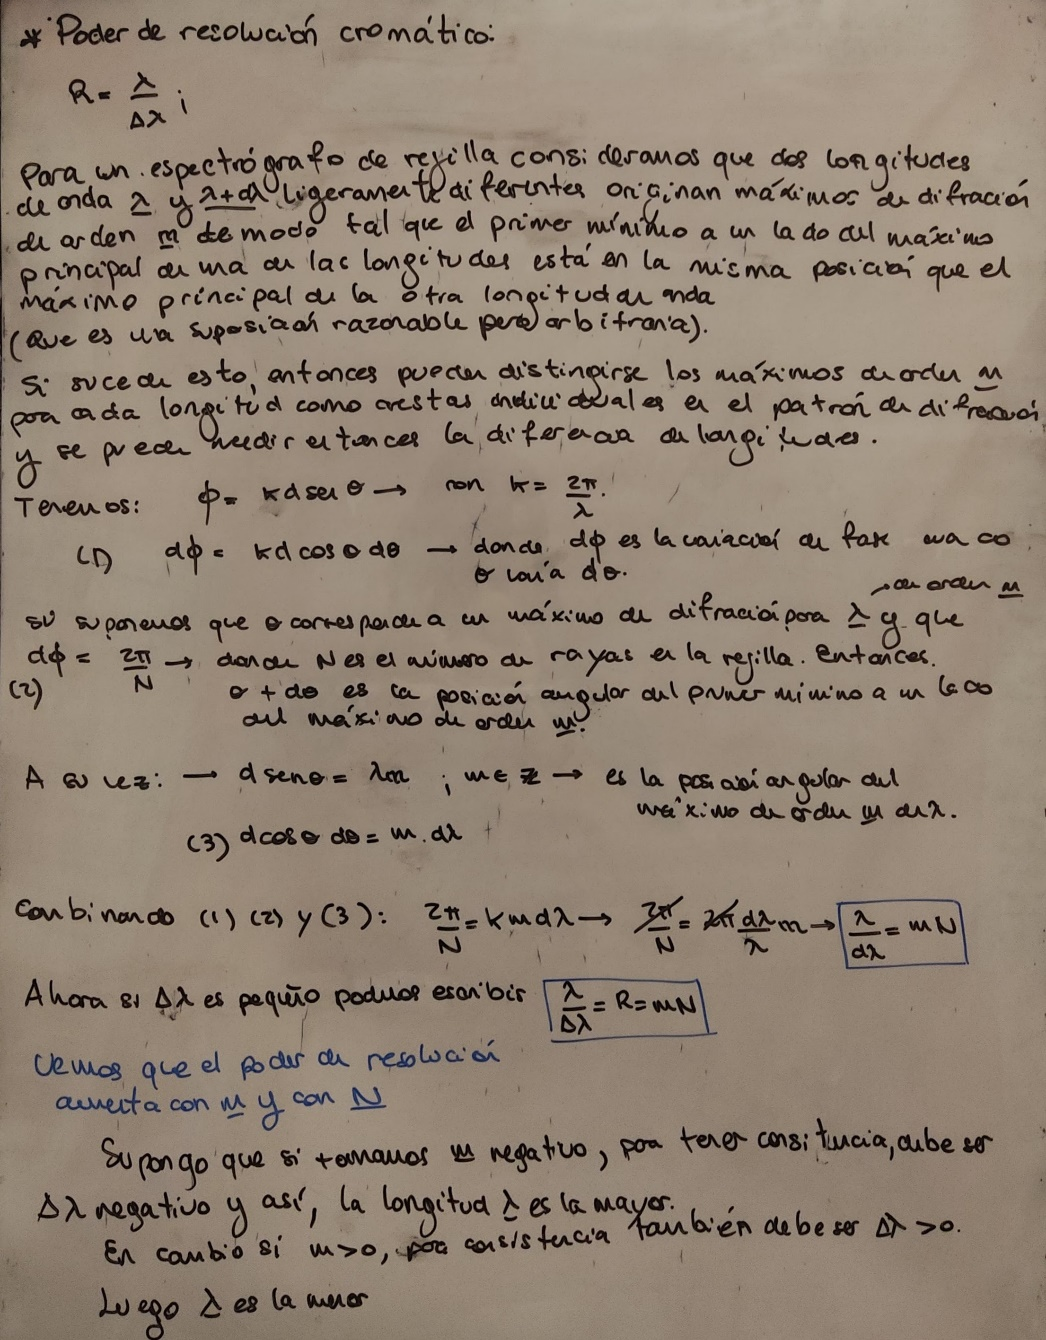 * Poder de resolución cromático:
R = λ/Δλ ;
Para un espectrógrafo de rejilla consideramos que dos longitudes
de onda λ y λ+dλ ligeramente diferentes originan máximos de difracción
de orden m de modo tal que el primer mínimo a un lado del máximo
principal de una de las longitudes está en la misma posición que el
máximo principal de la otra longitud de onda
(Que es una suposición razonable pero arbitraria).
Si sucede esto, entonces pueden distinguirse los máximos de orden m
para cada longitud como crestas individuales en el patrón de difracción
y se puede medir entonces la diferencia de longitudes.
Tenemos: φ = kd sen θ → con k = 2π/λ.
(1) dφ = kd cos θ dθ → donde dφ es la variación de fase cuando
θ varía dθ.
→ de orden m
si suponemos que θ corresponde a un máximo de difracción para λ y que
dφ = 2π/N → donde N es el número de rayas en la rejilla. Entonces.
(2) θ + dθ es la posición angular del primer mínimo a un lado
del máximo de orden m.
A su vez: → d sen θ = λm ; m ∈ Z → es la posición angular del
máximo de orden m de λ.
(3) d cos θ dθ = m.dλ
Combinando (1) (2) y (3): 2π/N = k m dλ → 2π/N = 2π dλ/λ m → λ/dλ = mN
Ahora si Δλ es pequeño podemos escribir λ/Δλ = R = mN
Vemos que el poder de resolución
aumenta con m y con N
Supongo que si tomamos m negativo, para tener consistencia, debe ser
Δλ negativo y así, la longitud λ es la mayor.
En cambio si m>0, por consistencia también debe ser Δλ >0.
Luego λ es la menor